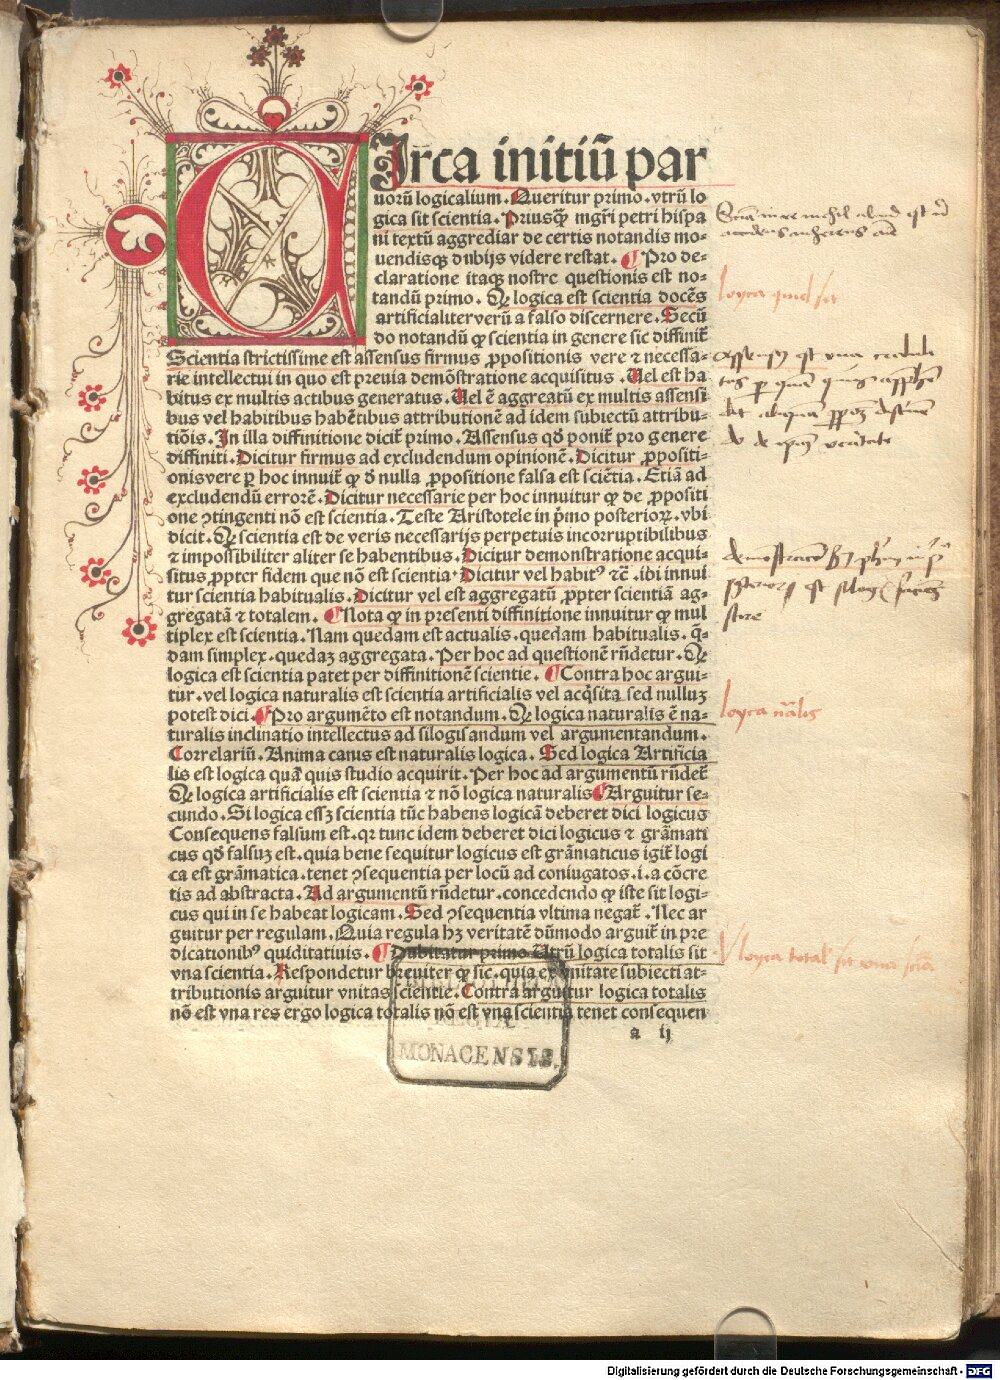 CIrca initiū par
uorū logicalium. Queritur primo. vtrū lo
gica sit scientia. Priusq̄ mgr̄i petri hispa
ni textū aggrediar de certis notandis mo-
uendisqꝫ dubijs videre restat. ¶ Pro de-
claratione itaqꝫ nostre questionis est no-
tandū primo. Qꝫ logica est scientia docēs
artificialiter verū a falso discernere. Secū
do notandū ꝙ scientia in genere sic diffinit᷑
Scientia strictissime est assensus firmus ꝓpositionis vere ⁊ necessa-
rie intellectui in quo est preuia demōstratione acquisitus. Uel est ha
bitus ex multis actibus generatus. Uel ē aggreatū ex multis assensi
bus vel habitibus habētibus attributionē ad idem subiectū attribu-
tiōis. In illa diffinitione dicit᷑ primo. Assensus qd̄ ponit᷑ pro genere
diffiniti. Dicitur firmus ad excludendum opinionē. Dicitur ꝓpositi-
onis vere ꝑ hoc innuit᷑ ꝙ d̄ nulla ꝓpositione falsa est sciētia. Etiā ad
excludendū errorē. Dicitur necessarie per hoc innuitur ꝙ de ꝓpositi
one ꝯtingenti nō est scientia. Teste Aristotele in p̄mo posterioꝝ. vbi
dicit. Qꝫ scientia est de veris necessarijs perpetuis incorruptibilibus
⁊ impossibiliter aliter se habentibus. Dicitur demonstratione acqui-
situs ꝓpter fidem que nō est scientia. Dicitur vel habitꝰ ⁊c̄. ibi innui
tur scientia habitualis. Dicitur vel est aggregatū ꝓpter scientiā ag-
gregatā ⁊ totalem. ¶ Nota ꝙ in presenti diffinitione innuitur ꝙ mul
tiplex est scientia. Nam quedam est actualis. quedam habitualis. q̄-
dam simplex. quedaꝫ aggregata. Per hoc ad questionē rn̄detur. Qꝫ
logica est scientia patet per diffinitionē scientie. ¶ Contra hoc argui-
tur. vel logica naturalis est scientia artificialis vel acq̄sita sed nulluꝫ
potest dici. ¶ Pro argumēto est notandum. Qꝫ logica naturalis ē na-
turalis inclinatio intellectus ad silogisandum vel argumentandum.
Correlariū. Anima canis est naturalis logica. Sed logica Artificia
lis est logica quā quis studio acquirit. Per hoc ad argumentū rn̄det᷑
Qꝫ logica artificialis est scientia ⁊ nō logica naturalis ¶ Arguitur se-
cundo. Si logica essꝫ scientia tūc habens logicā deberet dici logicus
Consequens falsum est. qꝛ tunc idem deberet dici logicus ⁊ grāmati
cus qd̄ falsuꝫ est. quia bene sequitur logicus est grāmaticus igit᷑ logi
ca est grāmatica. tenet ꝯsequentia per locū ad coniugatos. i. a cōcre
tis ad abstracta. Ad argumentū rn̄detur. concedendo ꝙ iste sit logi-
cus qui in se habeat logicam. Sed ꝯsequentia vltima negat᷑. Nec ar
guitur per regulam. Quia regula hꝫ veritatē dūmodo arguit᷑ in pre
dicationibꝰ quiditatiuis. ¶ Dubitatur primo Utrū logica totalis sit
vna scientia. Respondetur breuiter ꝙ sic. quia ex vnitate subiecti at-
tributionis arguitur vnitas scientie. Contra arguitur logica totalis
nō est vna res ergo logica totalis nō est vna scientia tenet consequen
a ij
loyca quid sit
loyca nālis
REGIA
MONACENSIS.
Digitalisierung gefördert durch die Deutsche Forschungsgemeinschaft - DFG